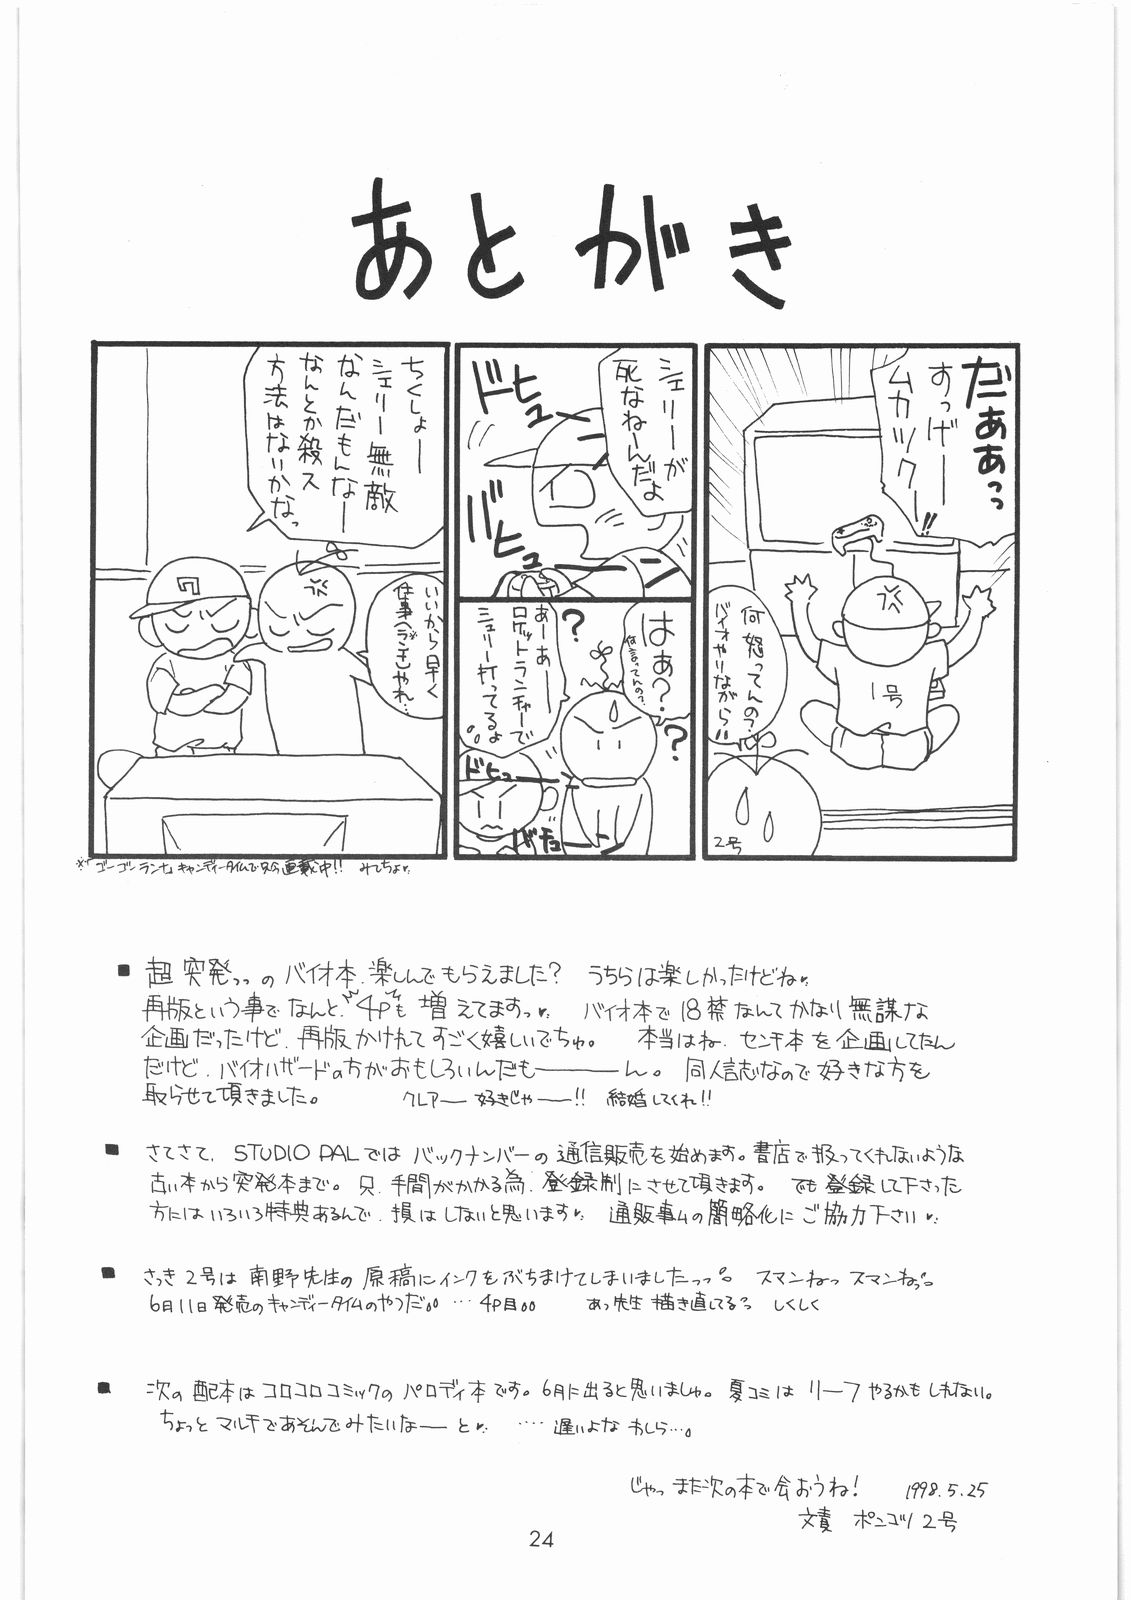 あとがき
だぁぁっっ
すっげー
ムカツクー!!
何怒ってんの?
バイオやりながら!!
1号
2号
シェリーが
死なねーんだよ
ドヒューン
バヒューン
はぁ?
何言ってんの?
?
?
あーあー
ロケットランチャーで
シェリー打ってるよ
ドヒューン
バキューン
ちくしょー
シェリー無敵
なんだもんなー
なんとか殺ス
方法はないかなっ
いいから早く
仕事(ランナ)やれ
※「ゴーゴーランナ」キャンディータイムで只今連載中!! みてちょ♥
■ 超突発っっのバイオ本、楽しんでもらえました? うちらは楽しかったけどね♥
再版という事でなんと、4Pも増えてますっ♥ バイオ本で18禁なんてかなり無謀な
企画だったけど、再版かけれてすごく嬉しいでちゅ。 本当はね、センチ本を企画してたん
だけど、バイオハザードの方がおもしろいんだも———ん。 同人誌なので好きな方を
取らせて頂きました。 クレアー 好きじゃー!! 結婚してくれ!!
■ さてさて、STUDIO PALではバックナンバーの通信販売を始めます。書店で扱ってくれないような
古い本から突発本まで。只、手間がかかる為、登録制にさせて頂きます。 でも登録して下さった
方にはいろいろ特典あるんで、損はしないと思います♥ 通販事ムの簡略化にご協力下さい♥
■ さっき2号は南野先生の原稿にインクをぶちまけてしまいましたっっ。 スマンねっ スマンねっ。
6月11日発売のキャンディータイムのやつだ。。…4P目。。 あっ先生描き直してるっ しくしく
■ 次の配本はコロコロコミックのパロディ本です。6月に出ると思いましゅ。夏コミはリーフやるかもしれない。
ちょっとマルチであそんでみたいなー と♥ ‥‥遅いよな わしら…。
じゃっ また次の本で会おうね! 1998.5.25
文責 ポンコツ2号
24